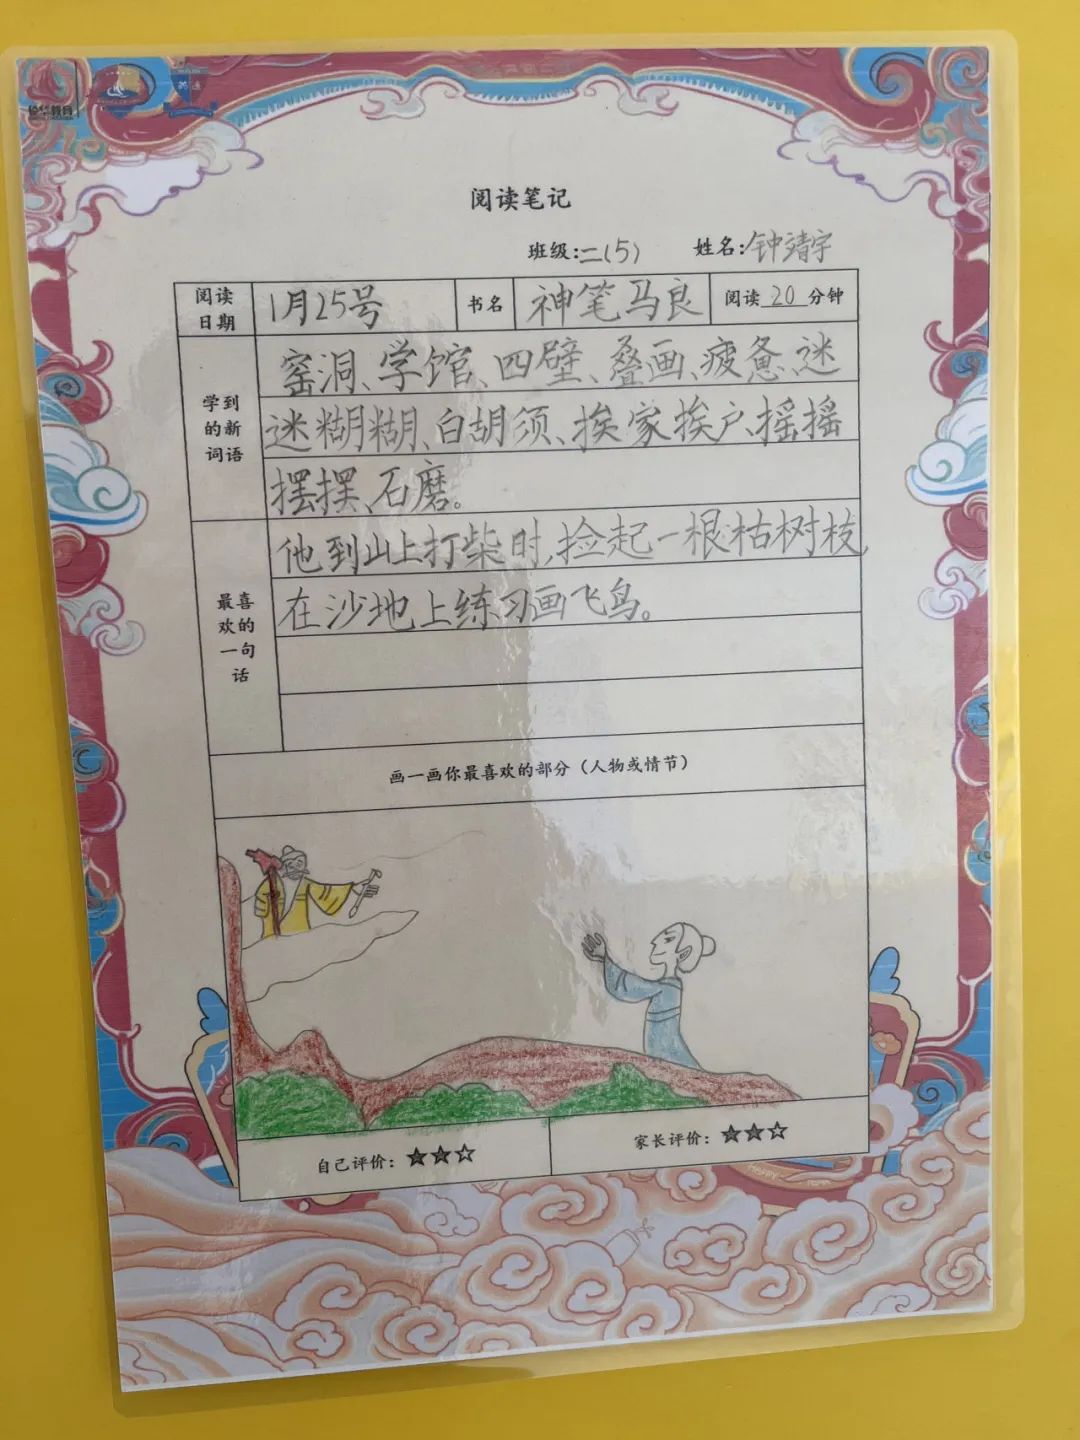 阅读笔记
班级:二(5) 姓名:钟靖宇
阅读日期 1月25号 书名 神笔马良 阅读 20 分钟
学到的新词语
窑洞、学馆、四壁、叠画、疲惫、迷
迷糊糊、白胡须、挨家挨户、摇摇
摆摆、石磨。
最喜欢的一句话
他到山上打柴时,捡起一根枯树枝,
在沙地上练习画飞鸟。
画一画你最喜欢的部分(人物或情节)
自己评价:★★☆ 家长评价:★★☆